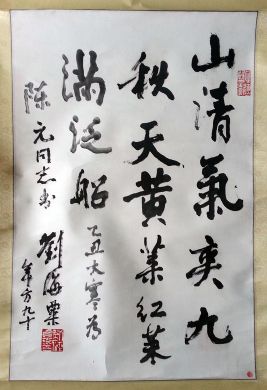 山清氣爽九
秋天黄葉红葉
满泛船
乙丑大寒为
陈元同志书
劉海粟
年方九十